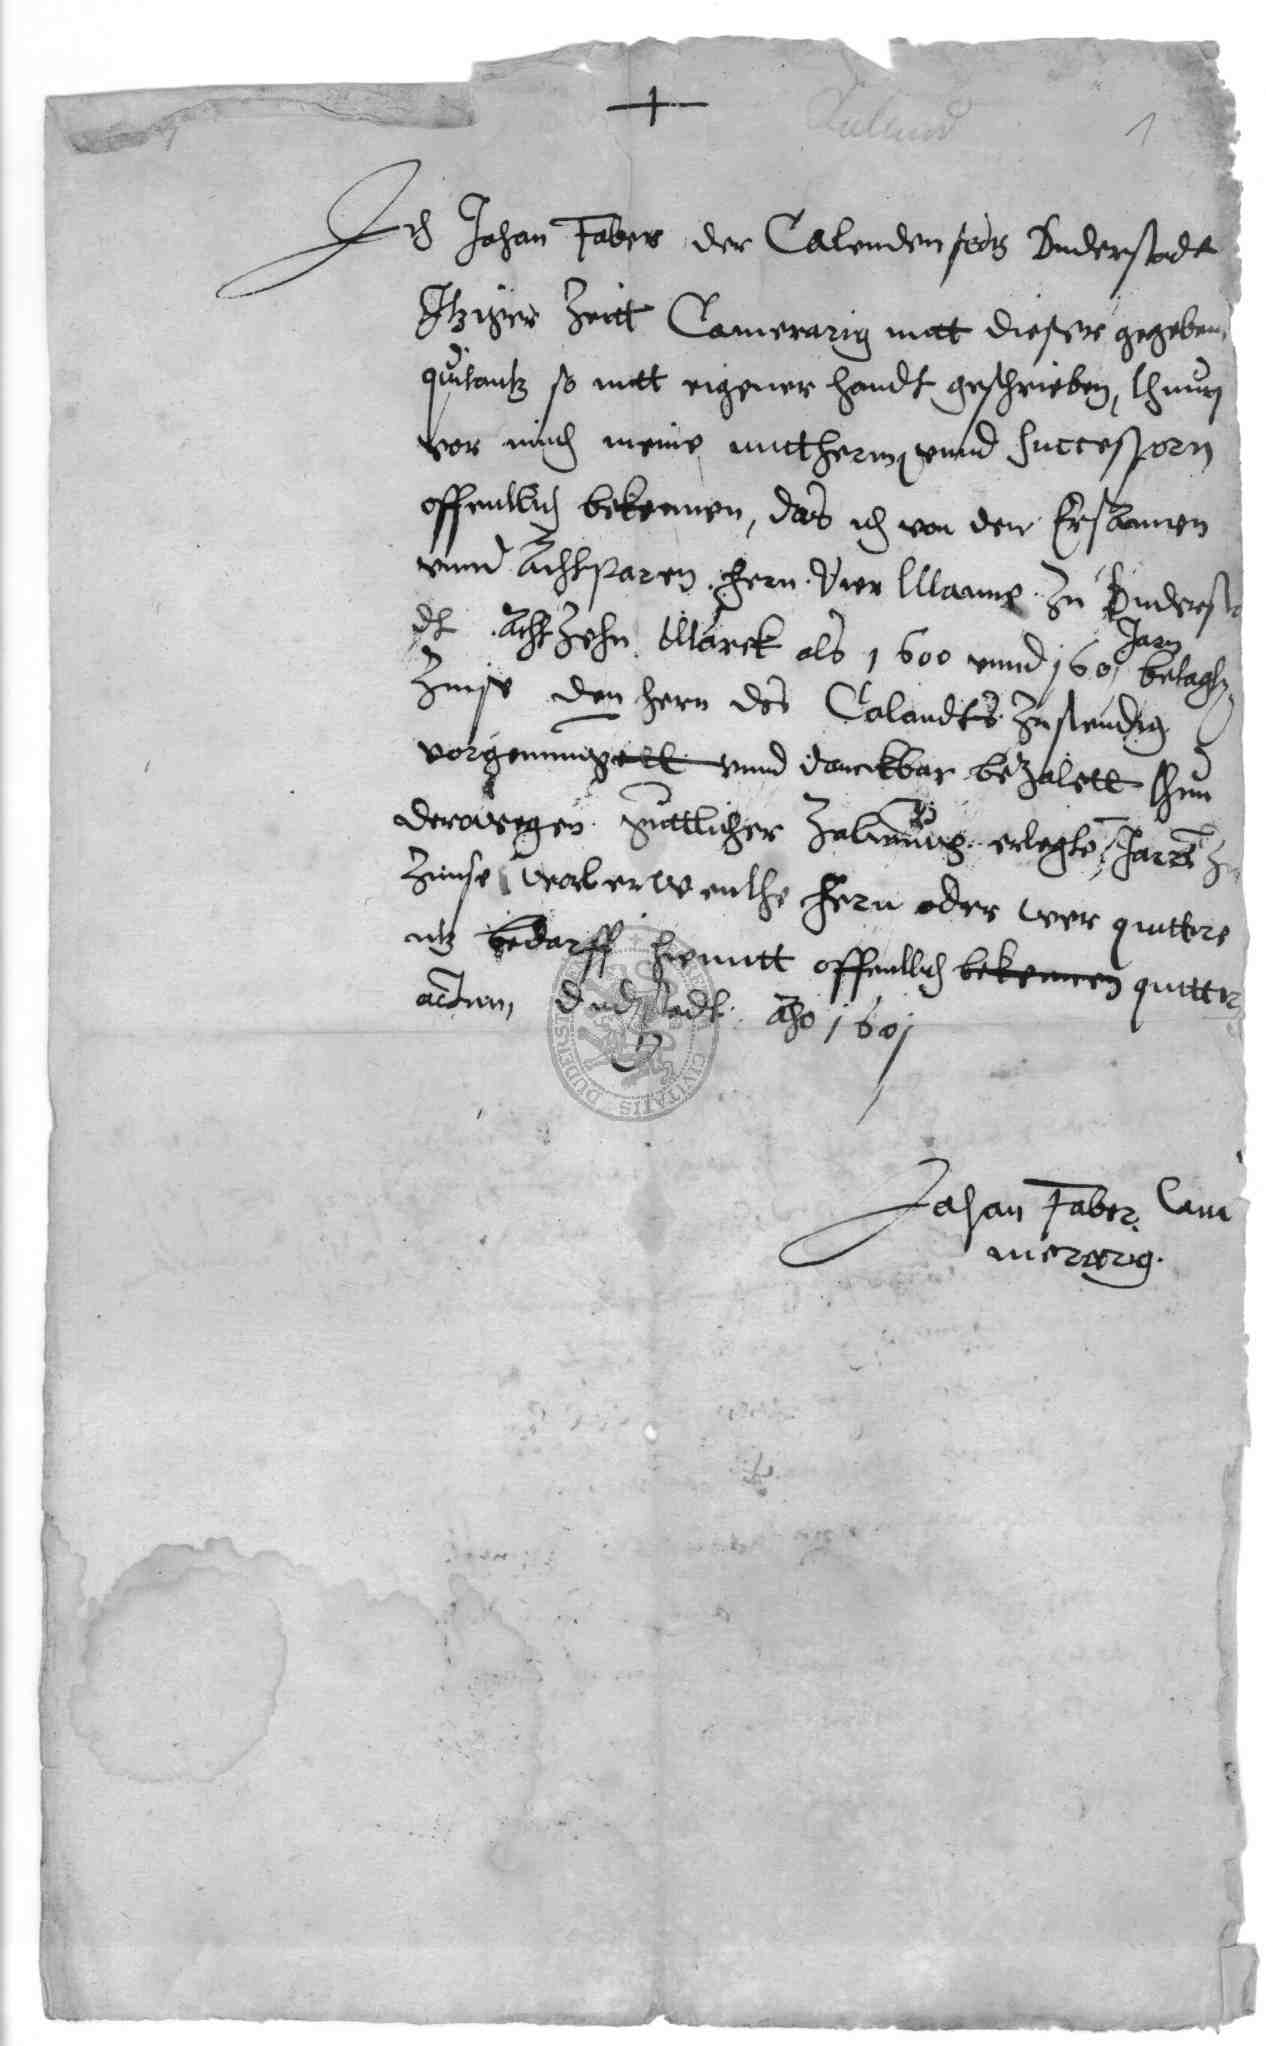 Ich Johan Faber der Calenden Duderstadt
Itziger Zeitt Camerarig mitt dieser gegeben
quitantz so mitt eigener handt geschrieben, thun
vor mich meine mitthern vnnd Successorn
offentlich bekennen, das ich von den Ersamen
vnnd Achtparen hern Vier Manne zu Dudersta
dt Achtzehn Marck als 1600 vnnd 1601 Jarn betagte
Zinse den hern des Calandts zustendig
vorgenuget vnnd danckbar bezalett thun
derowegen guttlicher Zalung erlegte Jars
Zinse hern oder wer quittire
ntz bedarff hiemitt offentlich bekennen quittir
actum Dudstadt Año 1601
Johan Faber Cam
merarig.
Caland
1
CIVITATIS DUDERS